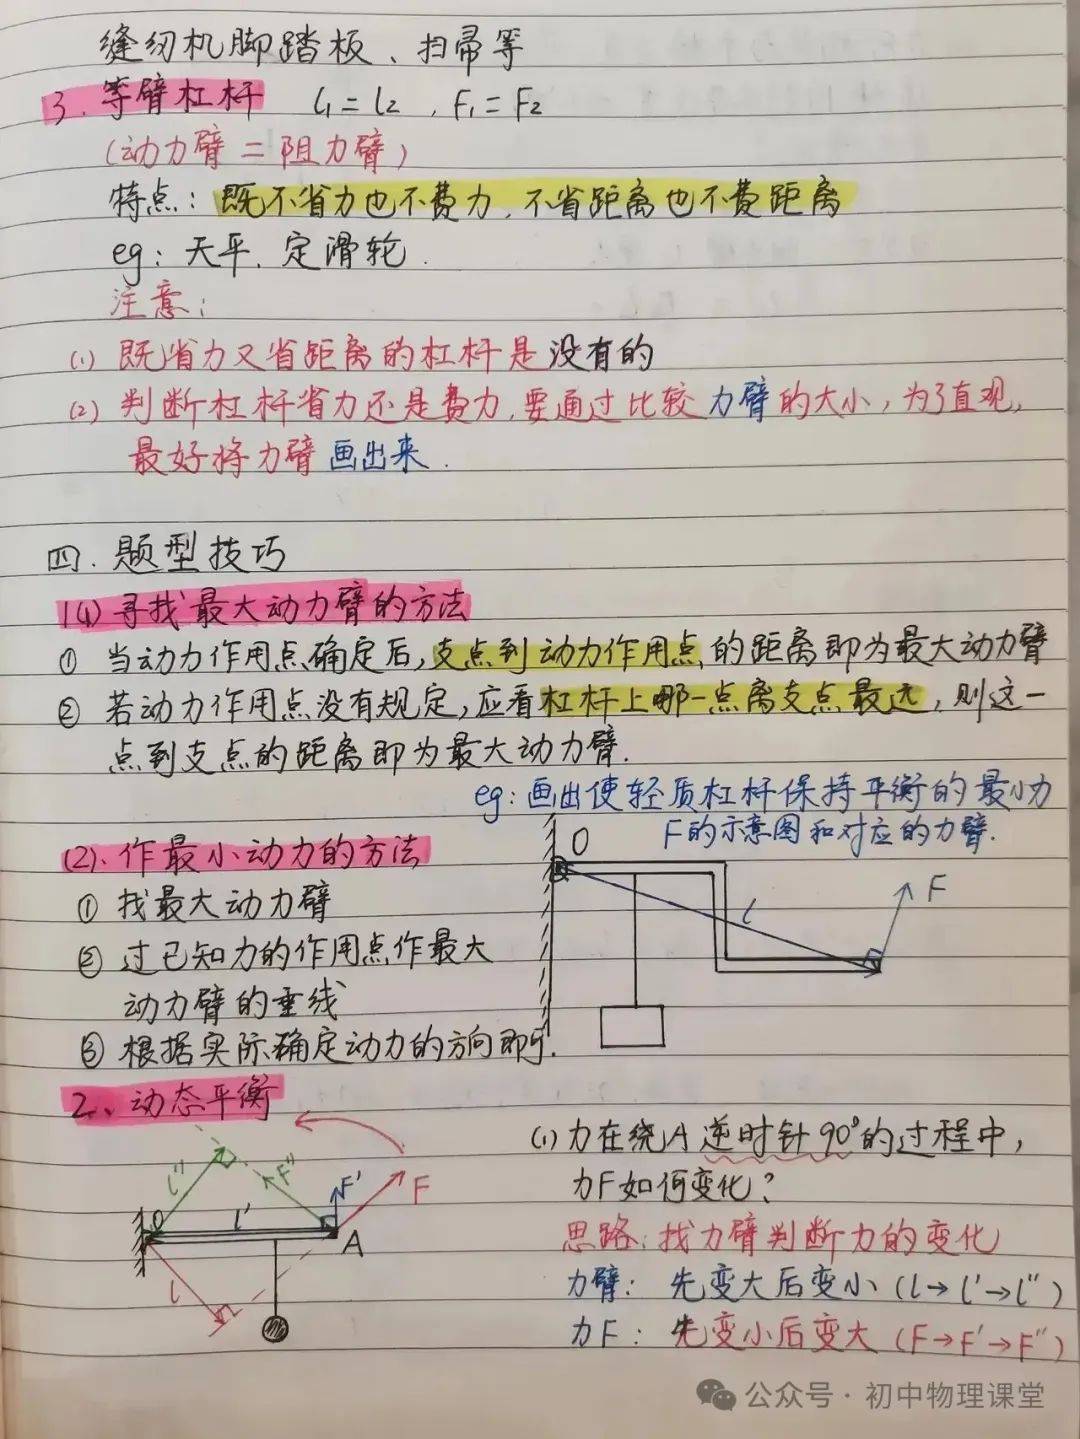 缝纫机脚踏板、扫帚等
3. 等臂杠杆 l₁=l₂，F₁=F₂
(动力臂=阻力臂)
特点：既不省力也不费力，不省距离也不费距离
eg：天平、定滑轮.
注意：
(1) 既省力又省距离的杠杆是没有的
(2) 判断杠杆省力还是费力，要通过比较力臂的大小，为了直观，
最好将力臂画出来.
四. 题型技巧
1(1) 寻找最大动力臂的方法
① 当动力作用点确定后，支点到动力作用点的距离即为最大动力臂
② 若动力作用点没有规定，应看杠杆上哪一点离支点最远，则这一
点到支点的距离即为最大动力臂.
eg：画出使轻质杠杆保持平衡的最小力
F的示意图和对应的力臂.
(2). 作最小动力的方法
① 找最大动力臂
② 过已知力的作用点作最大
动力臂的垂线
③ 根据实际确定动力的方向即可.
O
l
F
2、动态平衡
l″
F″
F′
F
O
l′
A
l
(1) 力在绕A逆时针90°的过程中，
力F如何变化？
思路：找力臂判断力的变化
力臂：先变大后变小（l→l′→l″）
力F：先变小后变大（F→F′→F″）
公众号·初中物理课堂